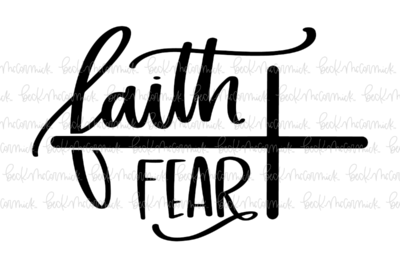 faith
FEAR